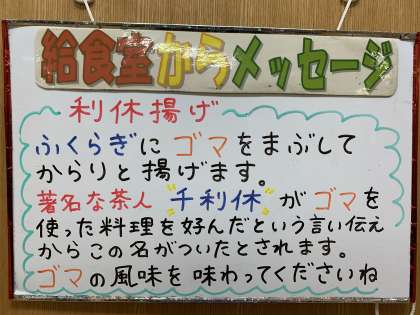 給食室からメッセージ
利休揚げ
ふくらぎに ゴマをまぶして
からりと揚げます。
著名な茶人 "千利休" が ゴマを
使った料理を好んだという言い伝え
から この名がついたとされます。
ゴマの風味を味わってくださいね